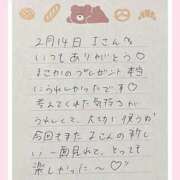 2月14日 Iさんへ
いつもありがとう♡
まさかのプレゼント本当に
うれしかったです♡
考えてくれた気持ちが
うれしくて、大切に使うね
今回もまた Iさんの新し
い一面見れて、とっても
楽しかった〜♡